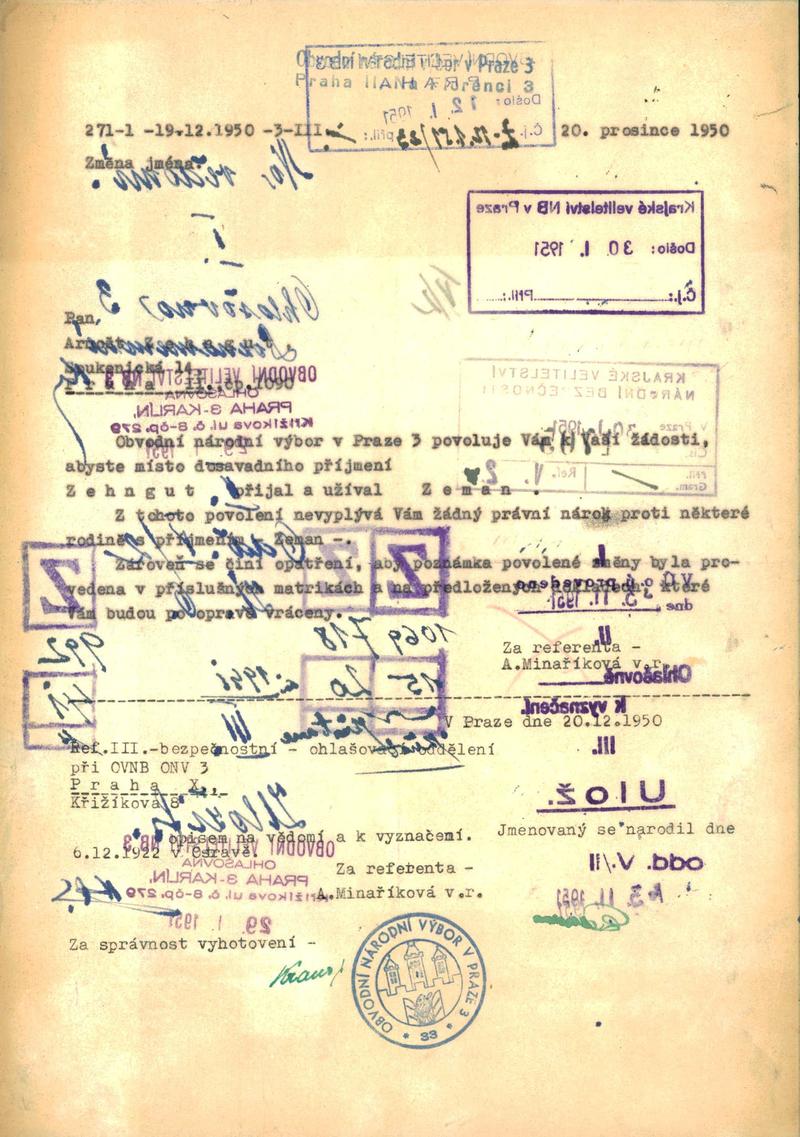 Obvodní národní výbor v Praze 3
Praha II., Na Florenci 3
271-1 -19.12.1950 -3-III.
20. prosince 1950
Změna jména.
Krajské velitelství NB v Praze
Došlo: 30. I. 1951
Č.j.: Příl.:
Pan,
Arnošt Zehngut
Soukenická 14
Praha II.,čp.1090
KRAJSKÉ VELITELSTVÍ
NÁRODNÍ BEZPEČNOSTI
OBVODNÍ VELITELSTVÍ NB 3
OHLAŠOVNA
PRAHA 3-KARLÍN,
Křižíkova ul. č. 8-čp. 279
Obvodní národní výbor v Praze 3 povoluje Vám k Vaší žádosti,
abyste místo dosavadního příjmení
Z e h n g u t přijal a užíval Z e m a n .
Z tohoto povolení nevyplývá Vám žádný právní nárok proti některé
rodině s příjmením - Zeman -.
Zároveň se činí opatření, aby poznámka povolené změny byla pro-
vedena v příslušných matrikách a na předložených dokladech, které
Vám budou po opravě vráceny.
1069718
992
Za referenta -
A.Minaříková v.r.
II.
Ohlašovně
K vyznačení.
V Praze dne 20.12.1950
III.
Ref.III.-bezpečnostní - ohlašovací oddělení
při OVNB ONV 3
P r a h a X.,
Křižíkova 8
Ulož.
opisem na vědomí a k vyznačení. Jmenovaný se narodil dne
6.12.1922 v Ostravě.
odd. V/II
OBVODNÍ VELITELSTVÍ NB 3
OHLAŠOVNA
PRAHA 3-KARLÍN,
Křižíkova ul. č. 8-čp. 279
29. I. 1951
Za referenta -
A.Minaříková v.r.
Za správnost vyhotovení -
Kraus
OBVODNÍ NÁRODNÍ VÝBOR V PRAZE 3
* 33 *